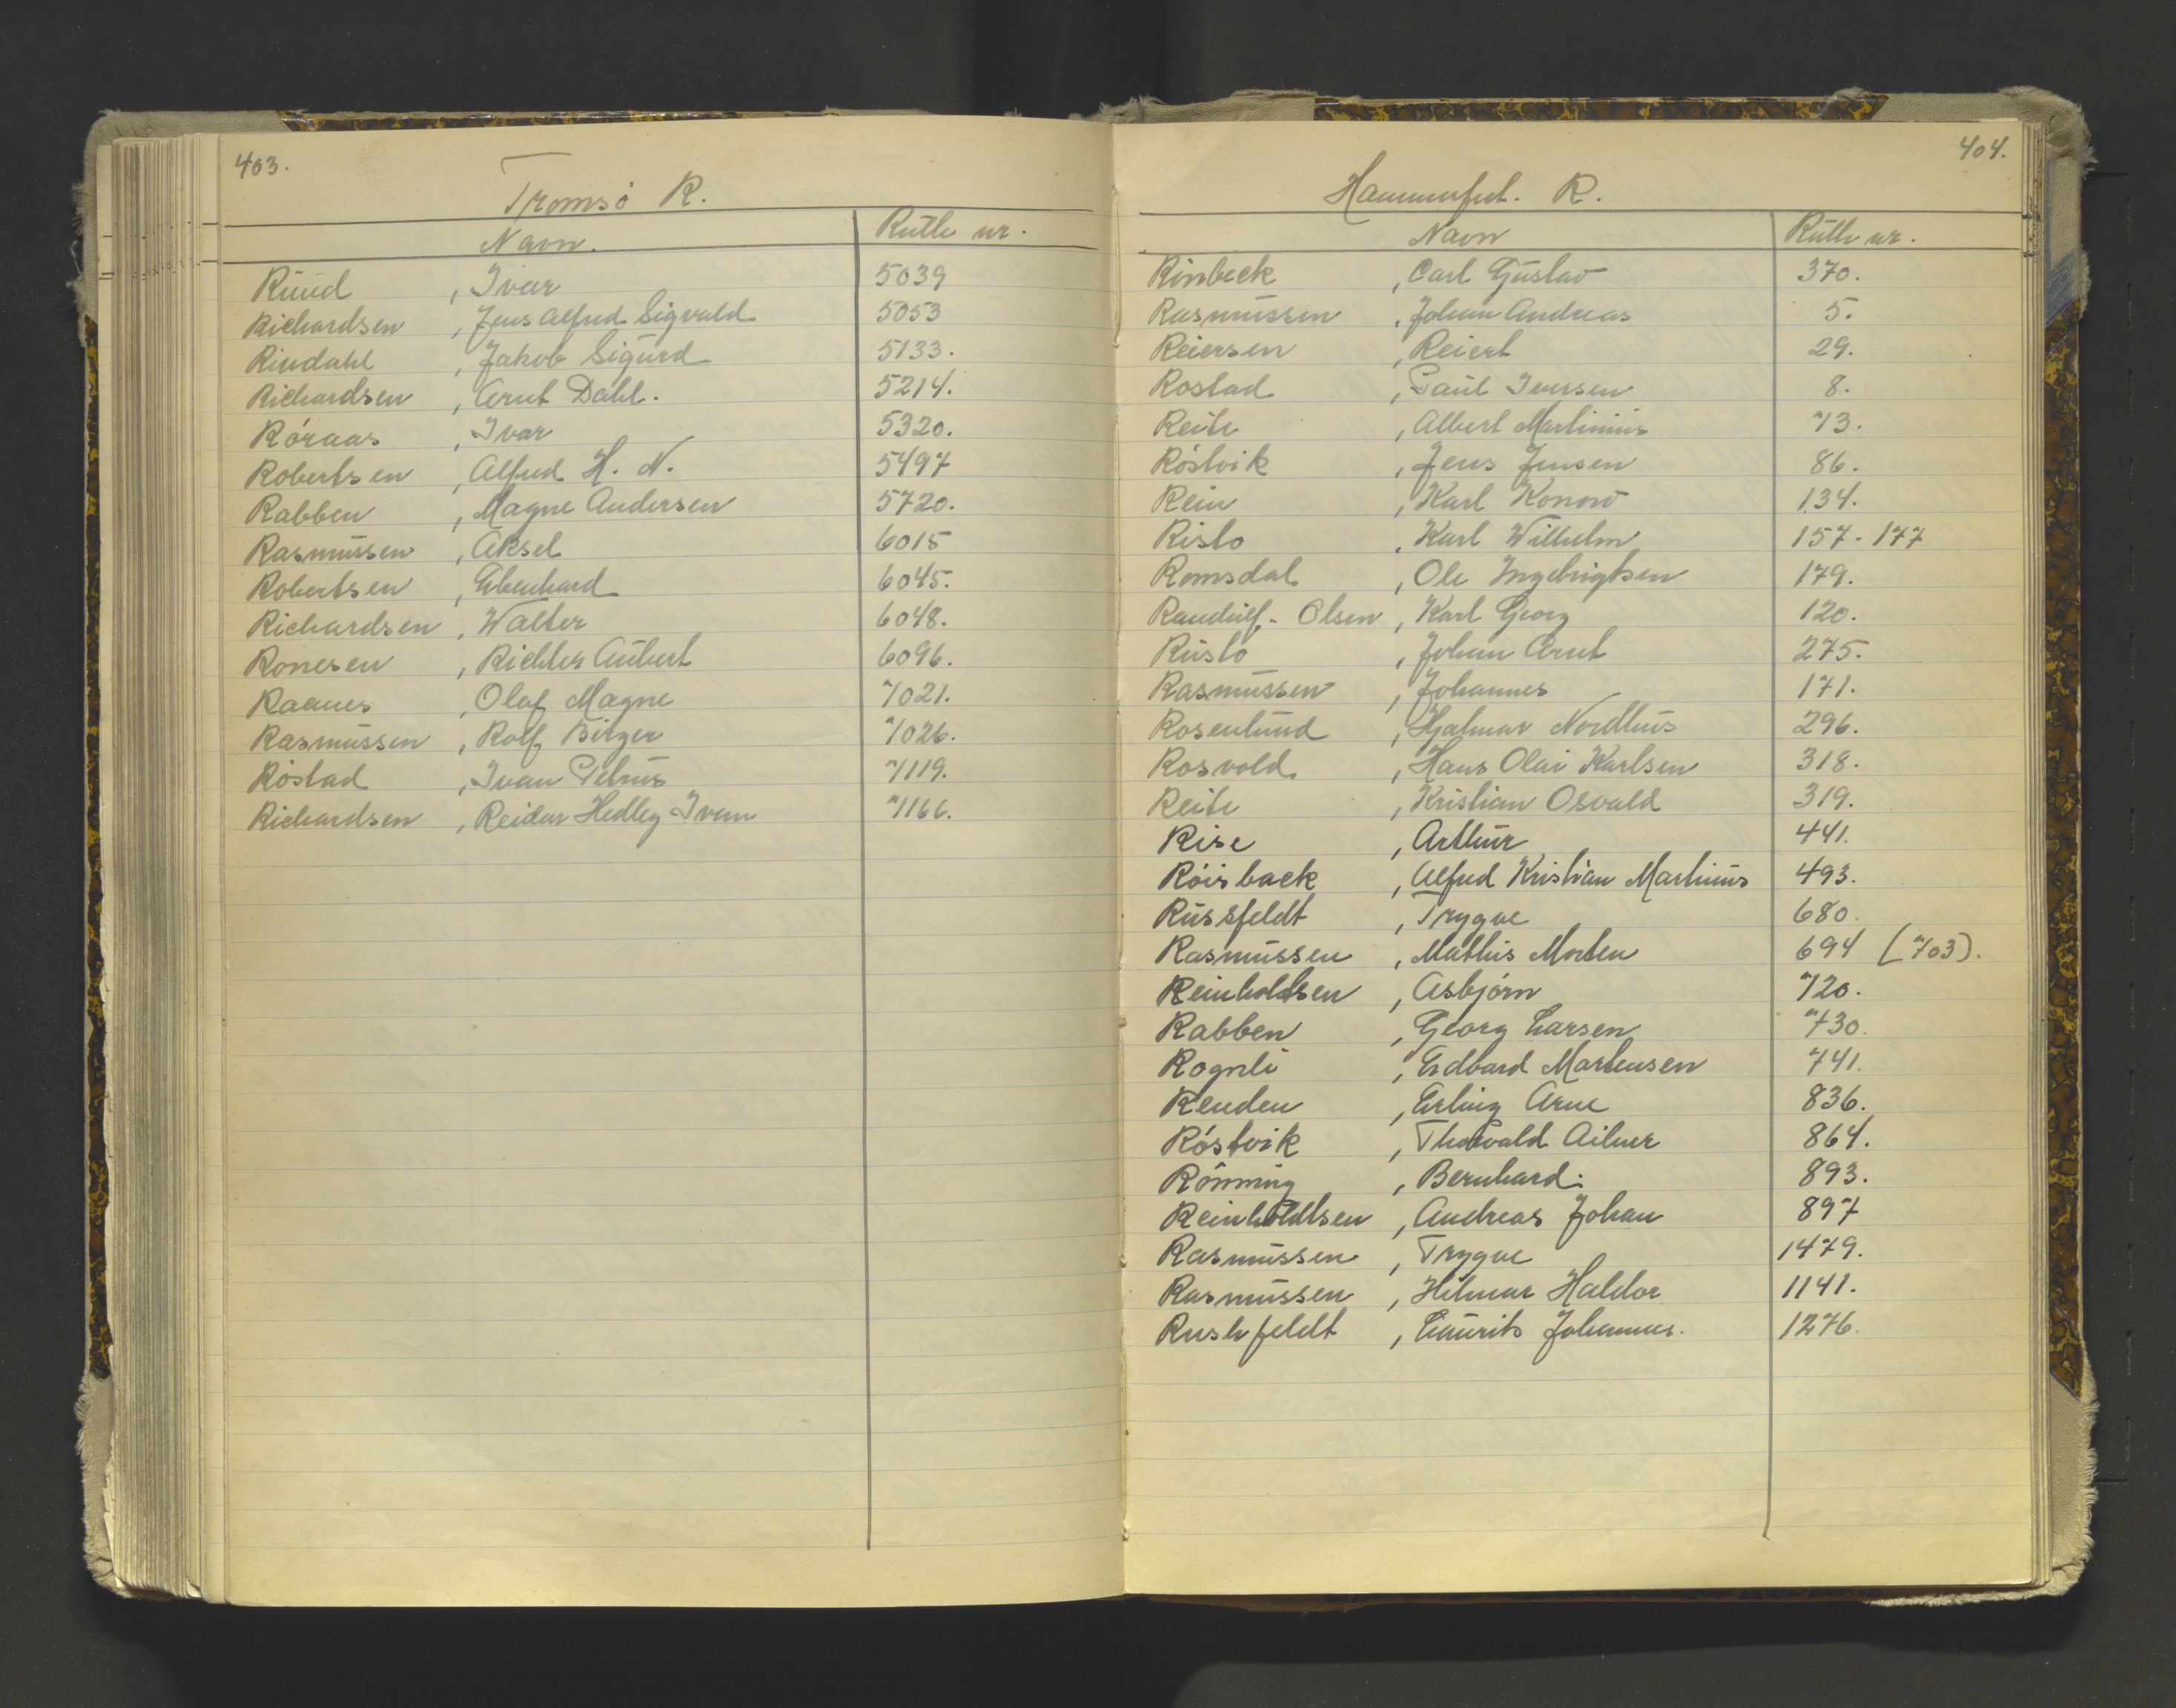 403.
Tromsö R.
Navn. Rulle nr.
Ruud , Ivar 5039
Richardsen , Jens Alfred Sigvald 5053
Rindahl , Jakob Sigurd 5133.
Richardsen , Arnt Dahl. 5214.
Röraas , Ivar 5320.
Robertsen , Alfred H. N. 5497
Rabben , Magne Andersen 5720.
Rasmussen , Aksel 6015
Robertsen , Edenhard 6045.
Richardsen , Walter 6048.
Ronesen , Richter Aubert 6096.
Raanes , Olaf Magne 7021.
Rasmussen , Rolf Birger 7026.
Röstad , Ivan Petrus 7119.
Richardsen , Reidar Hedley Ivan 7166.
404.
Hammerfest. R.
Navn Rulle nr.
Rinbeck , Carl Gustav 370.
Rasmussen , Johan Andreas 5.
Reiersen , Reiert 29.
Rostad , Paul Iversen 8.
Reite , Albert Martinius 73.
Röstvik , Jens Jensen 86.
Rein , Karl Konow 134.
Risto , Karl Wilhelm 157-177
Romsdal , Ole Ingebrigtsen 179.
Randulf-Olsen , Karl Georg 120.
Rustö , Johan Arnt 275.
Rasmussen , Johannes 171.
Rosenlund , Hjalmar Nordhus 296.
Rosvold , Hans Olai Karlsen 318.
Reite , Kristian Osvald 319.
Rise , Arthur 441.
Röisback , Alfred Kristian Martinus 493.
Russfeldt , Trygve 680.
Rasmussen , Mathis Morten 694 (703).
Reinholdtsen , Asbjörn 720.
Rabben , Georg Larsen 730.
Rognli , Edvard Martensen 741.
Renden , Erling Arne 836.
Röstvik , Thorvald Ailner 864.
Rönning , Bernhard. 893.
Reinholdtsen , Andreas Johan 897
Rasmussen , Trygve 1479.
Rasmussen , Hilmar Haldor 1141.
Rushfeldt , Laurits Johannes. 1276.